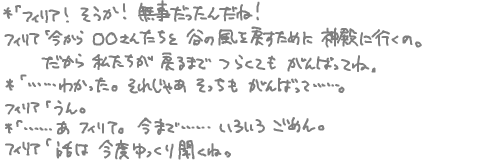 *「フィリア! そうか! 無事だったんだね!
フィリア「今から ○○さんたちと 谷の風を戻すために 神殿に行くの。
だから 私たちが 戻るまで つらくても がんばってね。
*「……わかった。それじゃあ そっちも がんばって……。
フィリア「うん。
*「……あ フィリア。 今まで…… いろいろ ごめん。
フィリア「話は 今度ゆっくり聞くね。